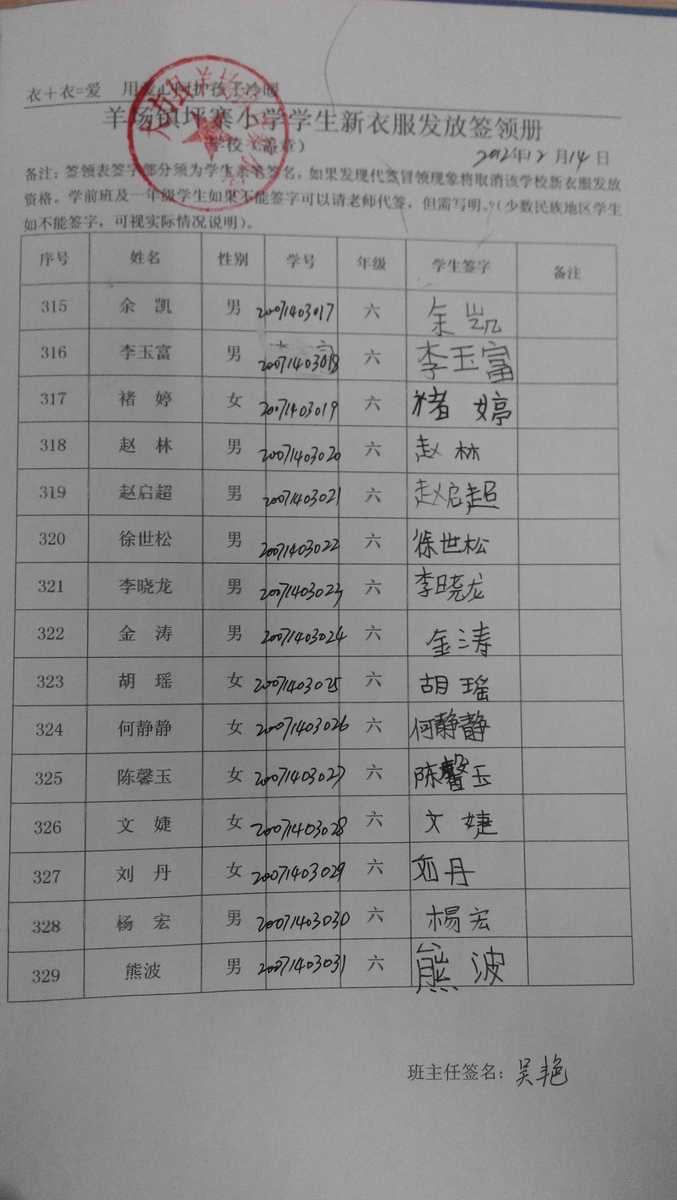 衣+衣=爱 用爱心呵护孩子冷暖
羊场镇坪寨小学学生新衣服发放签领册
学校（盖章）
2012年12月14日
备注：签领表签字部分须为学生亲笔签名，如果发现代签冒领现象将取消该学校新衣服发放
资格。学前班及一年级学生如果不能签字可以请老师代签，但需写明。（少数民族地区学生
如不能签字，可视实际情况说明）。
序号 姓名 性别 学号 年级 学生签字 备注
315 余 凯 男 20071403017 六 余凯
316 李玉富 男 20071403018 六 李玉富
317 褚 婷 女 20071403019 六 褚婷
318 赵 林 男 20071403020 六 赵林
319 赵启超 男 20071403021 六 赵启超
320 徐世松 男 20071403022 六 徐世松
321 李晓龙 男 20071403023 六 李晓龙
322 金 涛 男 20071403024 六 金涛
323 胡 瑶 女 20071403025 六 胡瑶
324 何静静 女 20071403026 六 何静静
325 陈馨玉 女 20071403027 六 陈馨玉
326 文 婕 女 20071403028 六 文婕
327 刘 丹 女 20071403029 六 刘丹
328 杨 宏 男 20071403030 六 杨宏
329 熊波 男 20071403031 六 熊波
班主任签名：吴艳